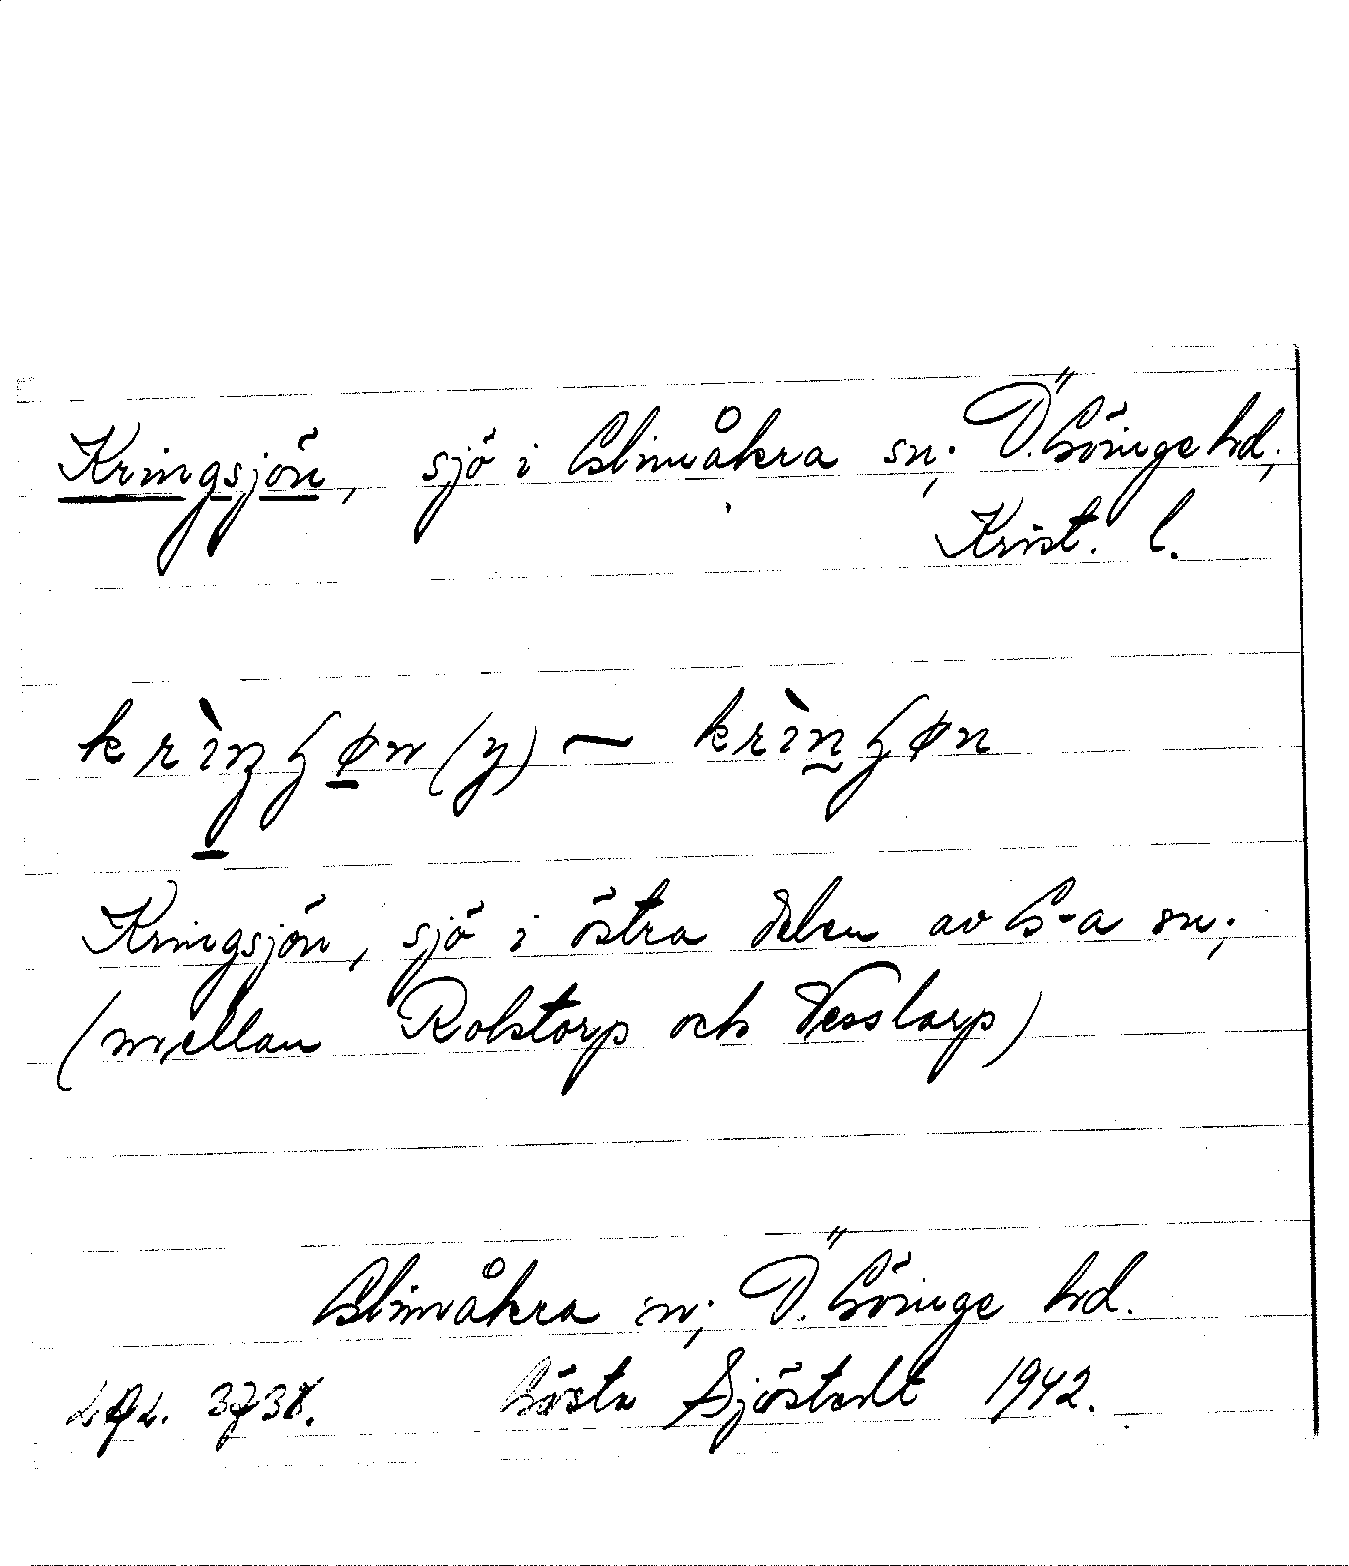 Kringsjön, sjö i Glimåkra sn; Ö. Göinge hd;
Krist. l.
(y) ~
Kringsjön, sjö i östra delen av G-a sn;
(mellan Rolstorp och Vesslarp)
Glimåkra sn; Ö. Göinge hd.
Gösta Sjöstedt 1942.